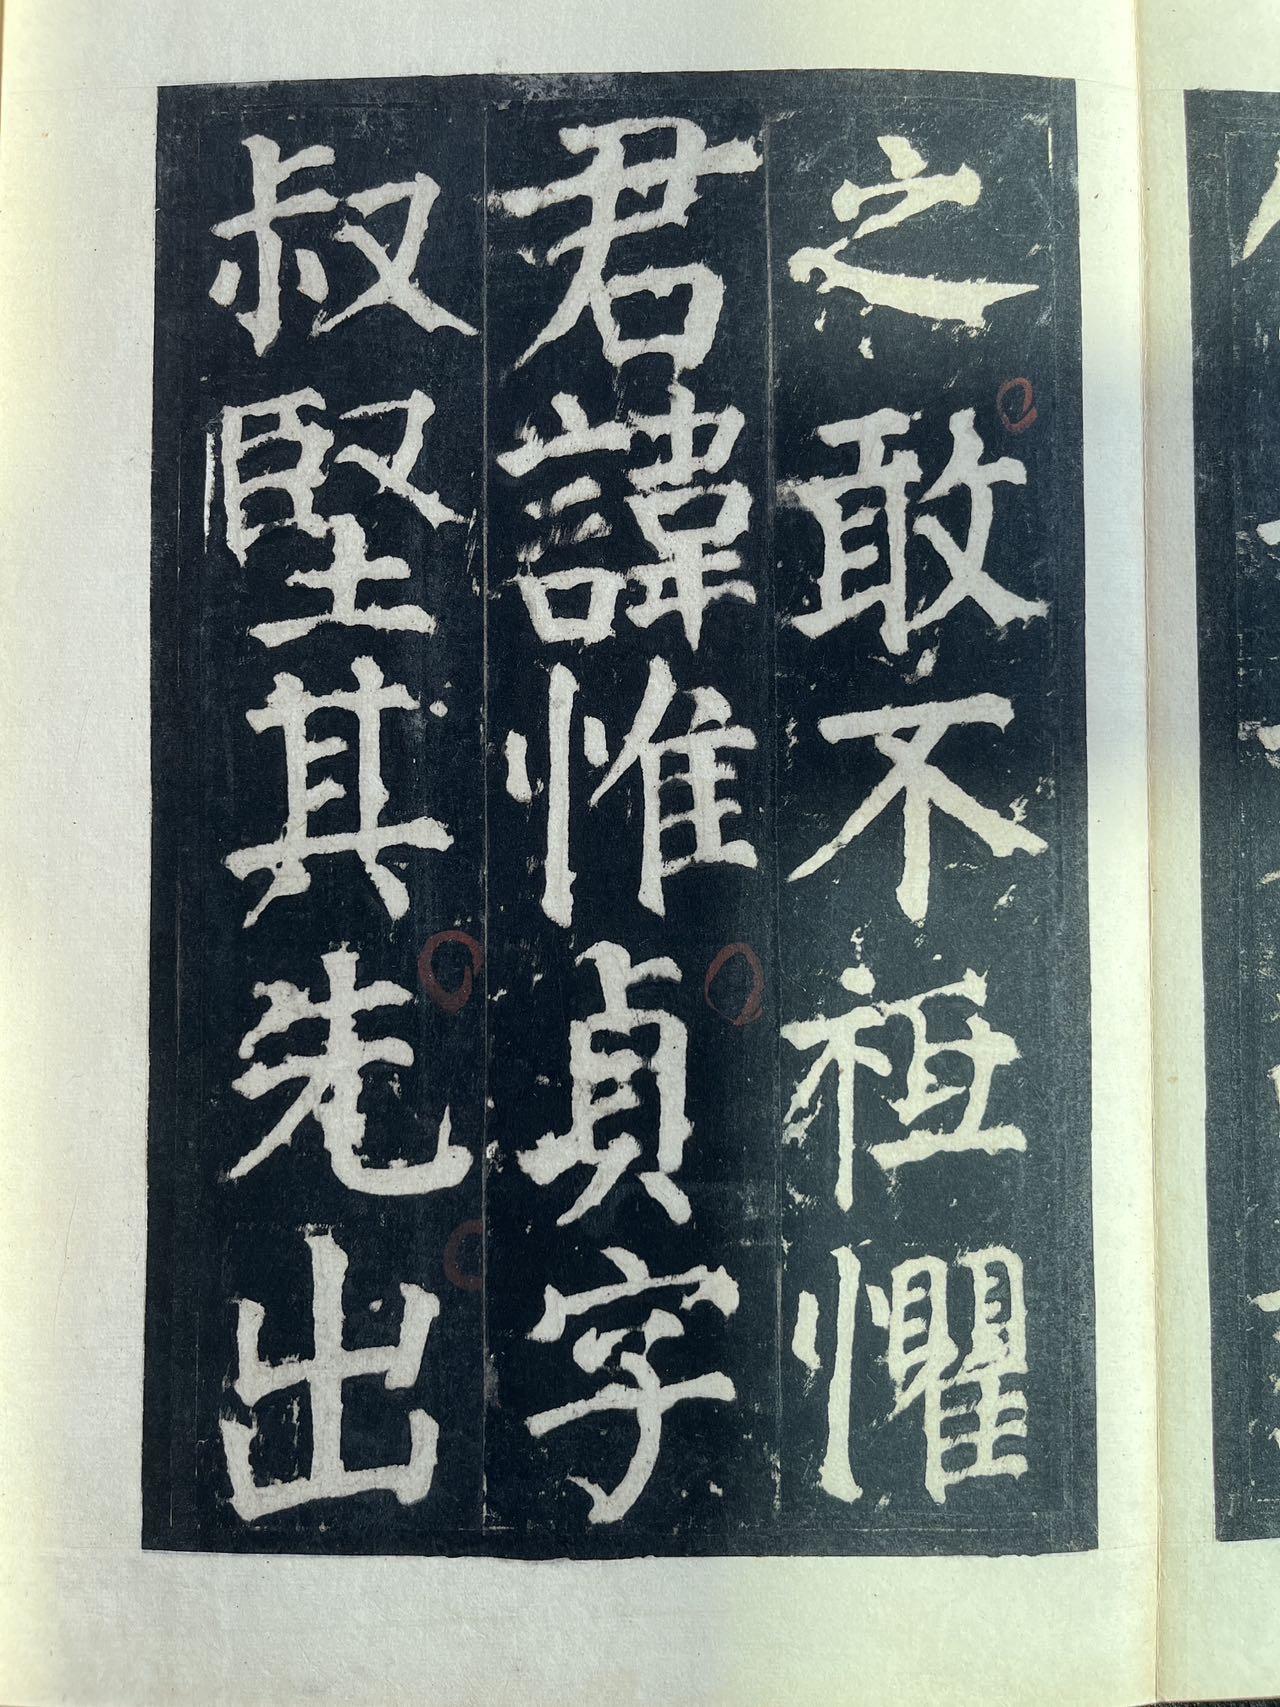 之敢不祖懼
君諱惟貞字
叔堅其先出